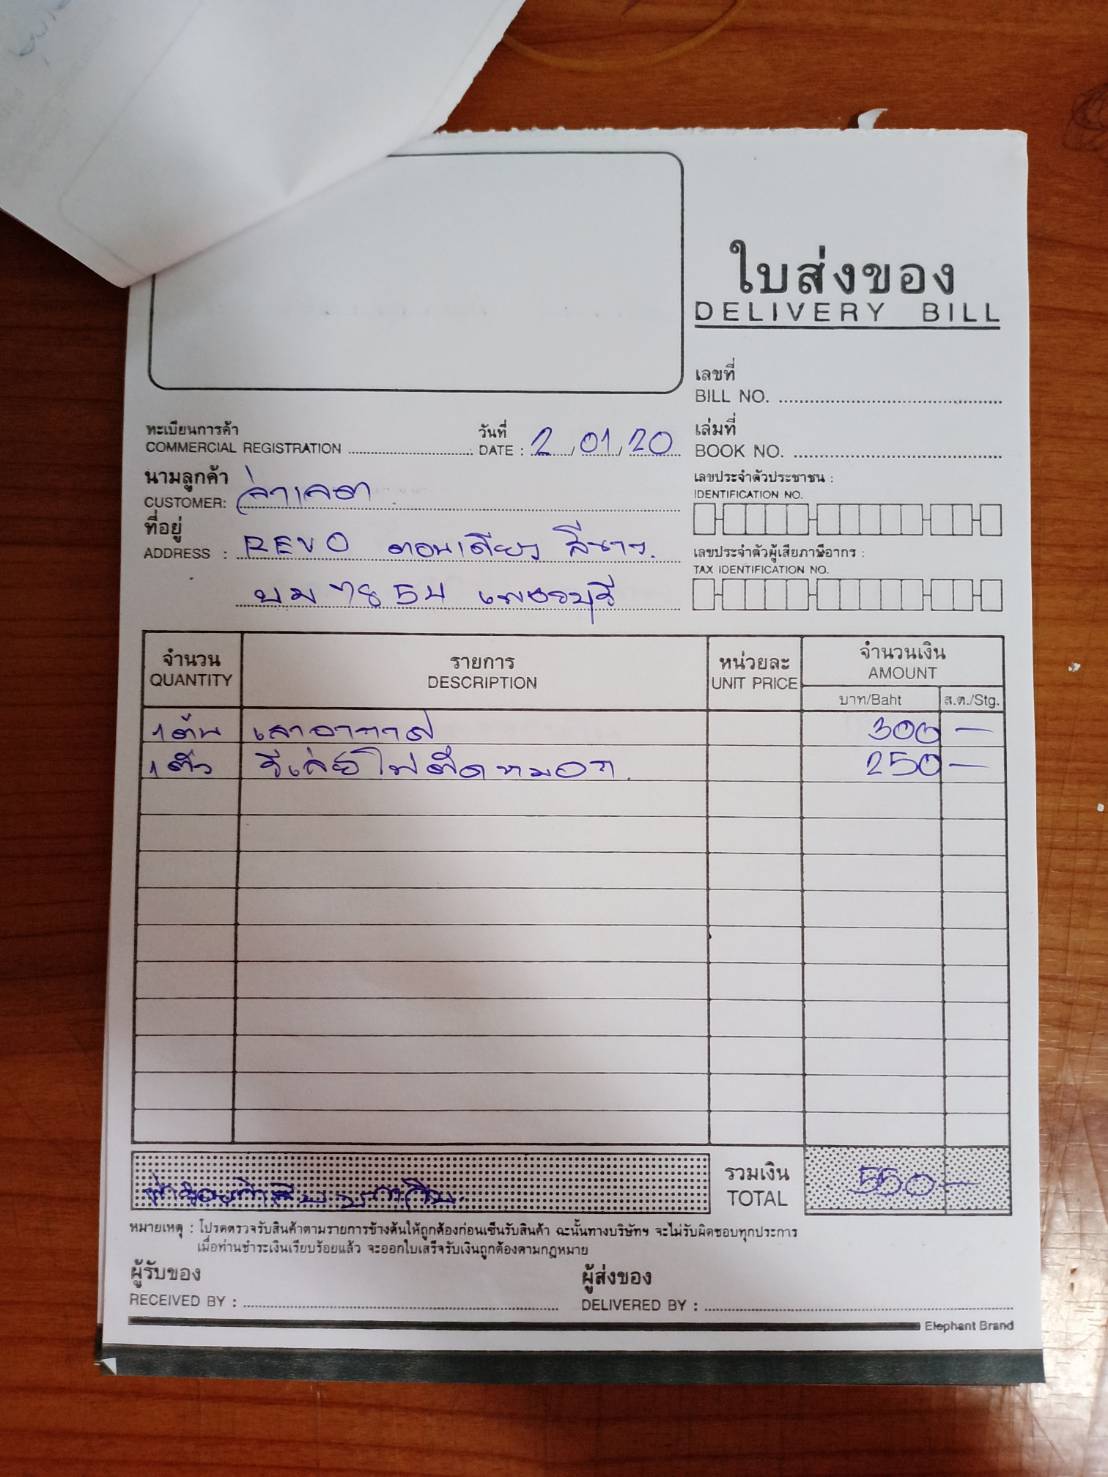 ใบส่งของ
DELIVERY BILL
เลขที่
BILL NO.
ทะเบียนการค้า
COMMERCIAL REGISTRATION
วันที่
DATE : 2 / 01 / 20
เล่มที่
BOOK NO.
นามลูกค้า
CUSTOMER:
เลขประจำตัวประชาชน :
IDENTIFICATION NO.
ที่อยู่
ADDRESS : REVO ตอนเดียว สีขาว.
เลขประจำตัวผู้เสียภาษีอากร :
TAX IDENTIFICATION NO.
เพชรบุรี
จำนวน รายการ หน่วยละ จำนวนเงิน
QUANTITY DESCRIPTION UNIT PRICE AMOUNT
บาท/Baht ส.ต./Stg.
1 ต้น เสาอากาศ 300 -
1 ตัว รีเลย์ไฟตัดหมอก. 250 -
รวมเงิน
TOTAL 550 -
หมายเหตุ : โปรดตรวจรับสินค้าตามรายการข้างต้นให้ถูกต้องก่อนเซ็นรับสินค้า ฉะนั้นทางบริษัทฯ จะไม่รับผิดชอบทุกประการ
เมื่อท่านชำระเงินเรียบร้อยแล้ว จะออกใบเสร็จรับเงินถูกต้องตามกฎหมาย
ผู้รับของ
RECEIVED BY :
ผู้ส่งของ
DELIVERED BY :
Elephant Brand